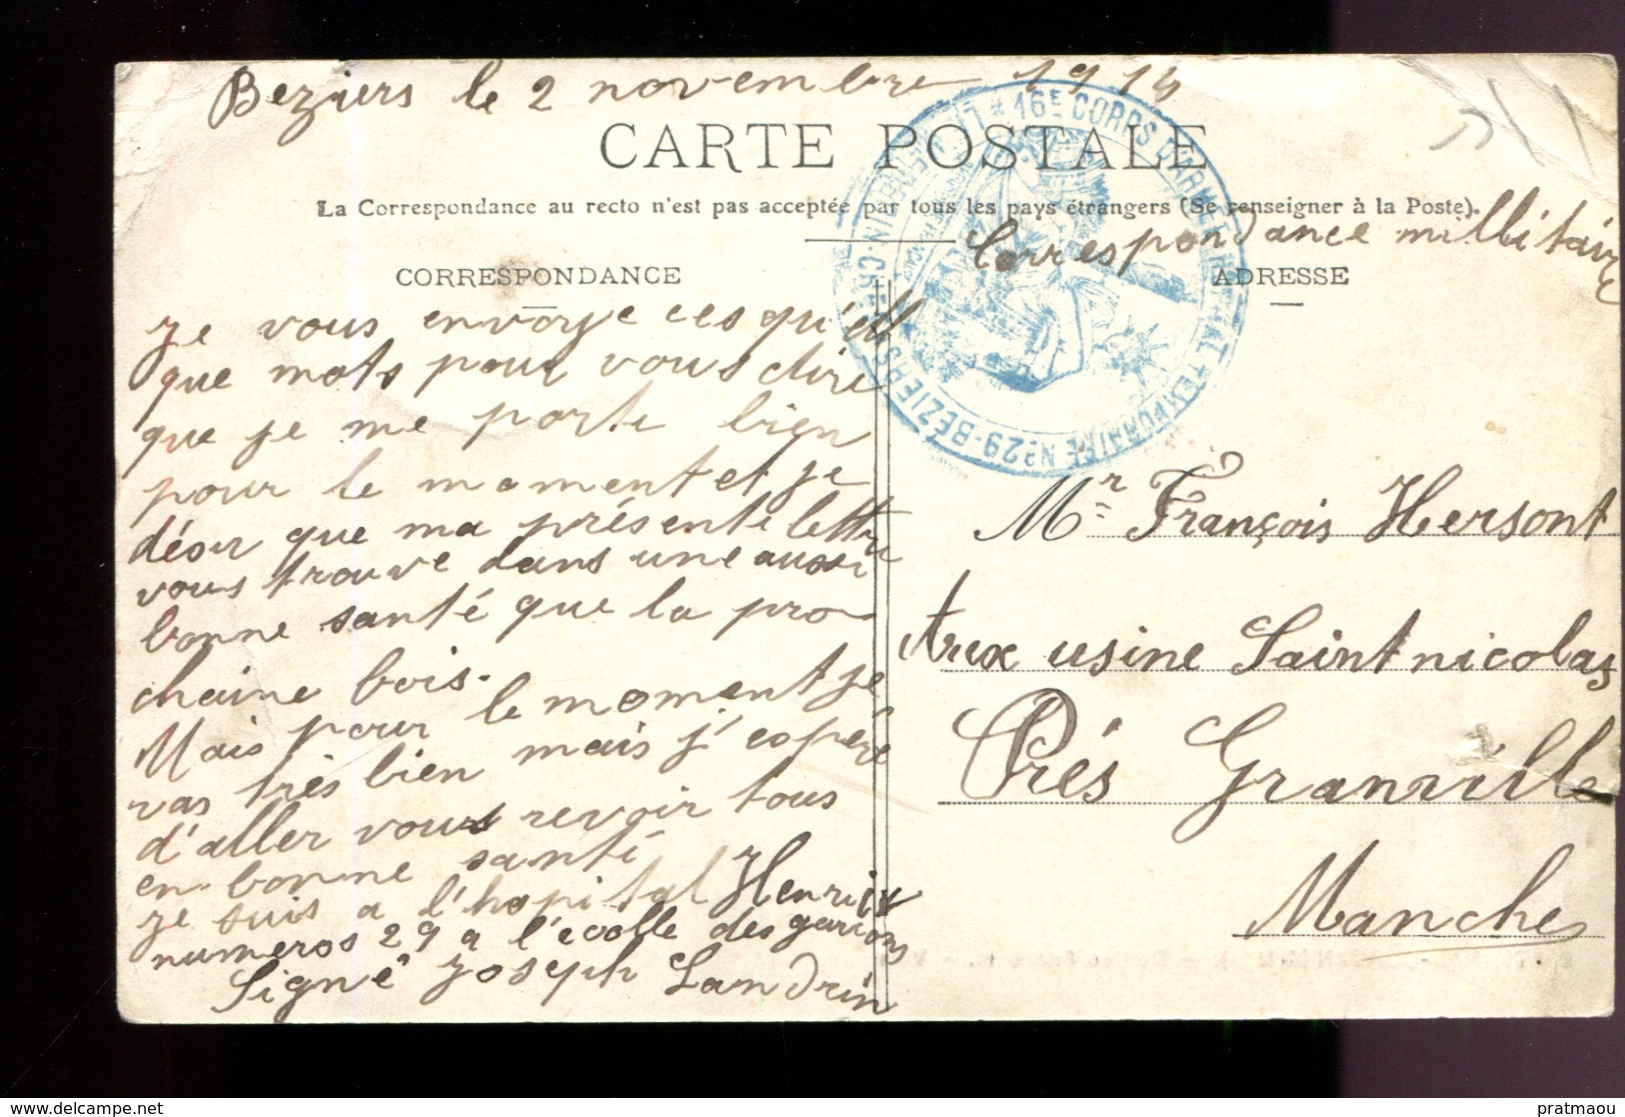 Beziers le 2 novembre 1914
CARTE POSTALE
La Correspondance au recto n'est pas acceptée par tous les pays étrangers (Se renseigner à la Poste).
Correspondance millitaire
CORRESPONDANCE
je vous envoye ces qu'ell
que mots pour vous dire
que je me porte bien
pour le moment et je
désir que ma présente lettre
vous trouve dans une aussi
bonne santé que la pro
chaine bois.
Mais pour le moment je
vas très bien mais j'espère
d'aller vous revoir tous
en bonne santé
je suis a l'hopital Henrie
numeros 29 a l'ecolle des garcons
Signé Joseph Landrin
ADRESSE
Mr François Hersont
Aux usine Saint nicolas
Près Granville
Manche
LE MEDECIN CHEF * 16E CORPS D'ARMÉE HOPITAL TEMPORAIRE No 29 - BÉZIERS
pratmaou